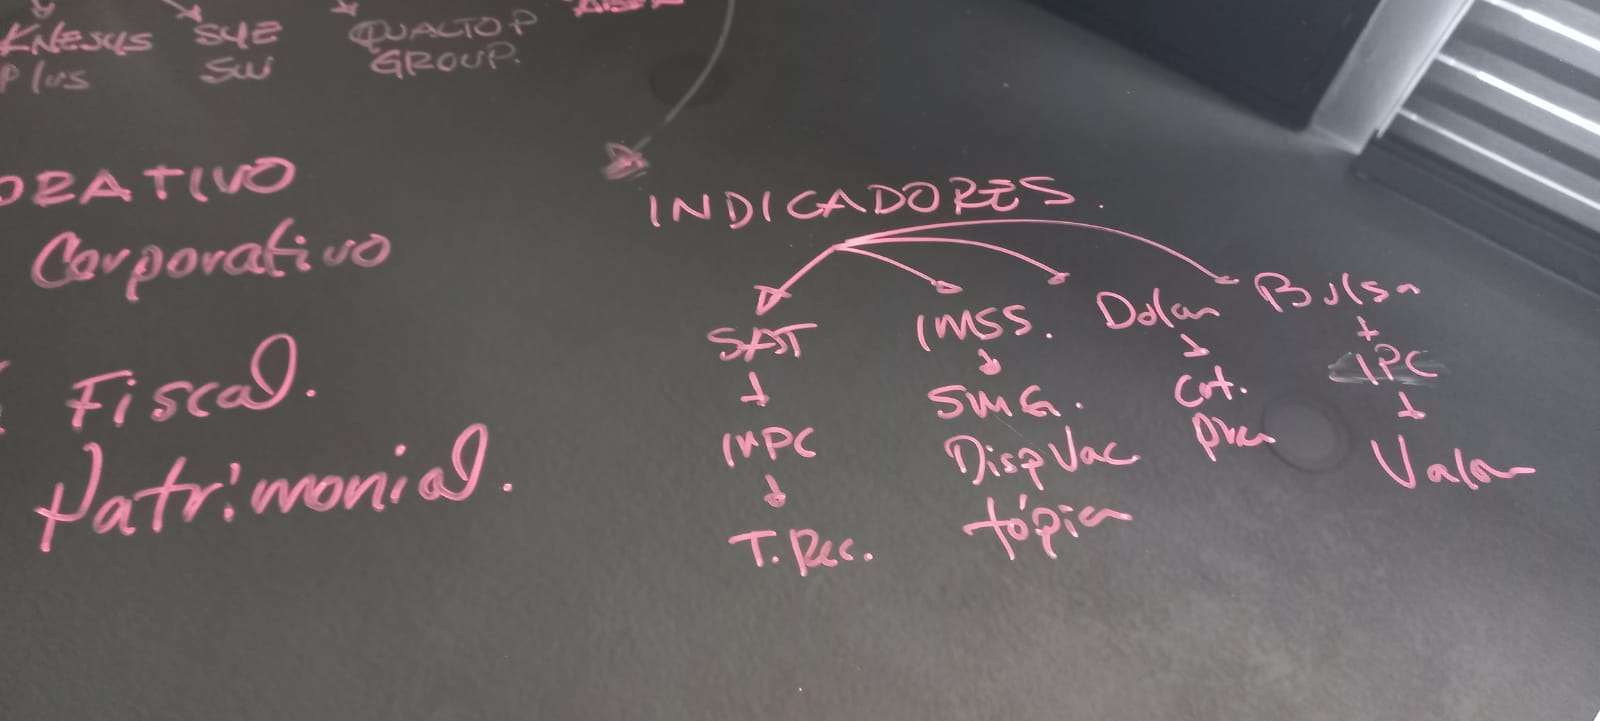 KNESYS SYE QUALTOP
Plus SW GROUP.
ORATIVO
Corporativo
Fiscal.
Patrimonial.
INDICADORES.
SAT
INPC
T. Rec.
IMSS.
SMG.
Disp Vac
tópica
Dolar
Cot.
Bolsa
IPC
Valor